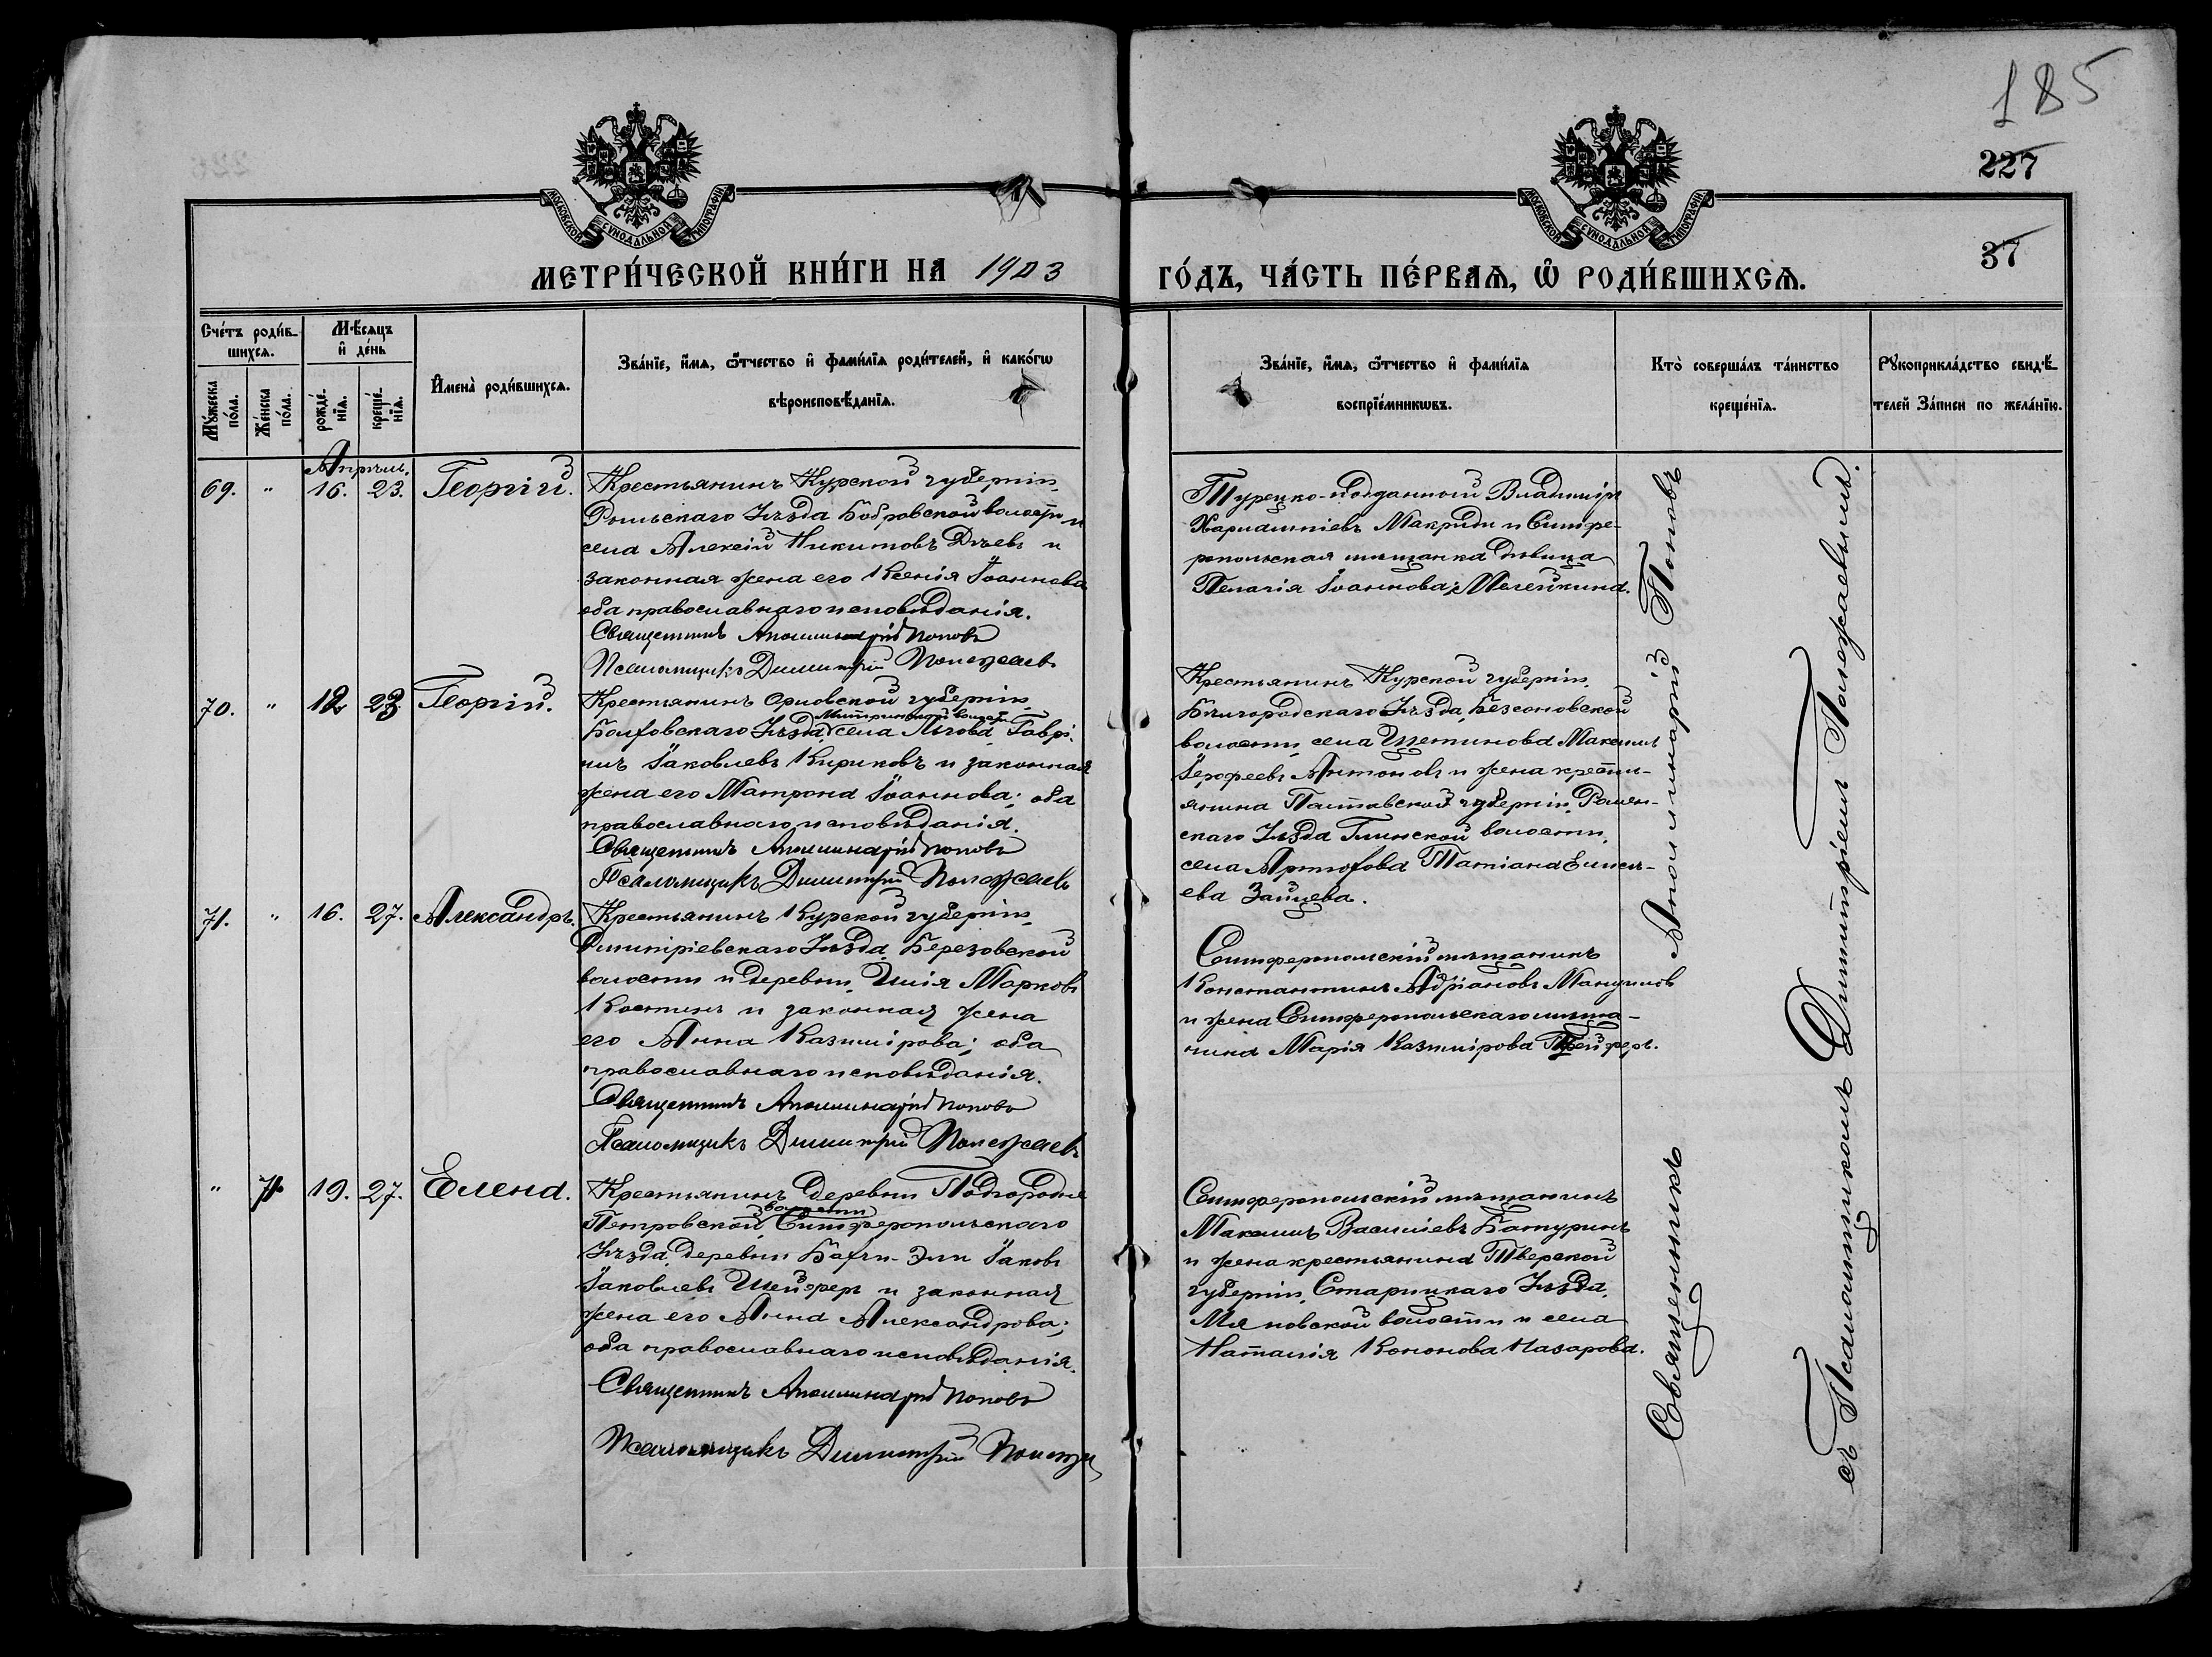 185
227
37
МОСКОВСКОЙ СѴНОДАЛЬНОЙ ТИПОГРАФІИ
МОСКОВСКОЙ СѴНОДАЛЬНОЙ ТИПОГРАФІИ
МЕТРИ́ЧЕСКОЙ КНИ́ГИ НА 1903 ГО́ДЪ, ЧА́СТЬ ПЕ́РВАѦ, Ѽ РОДИ́ВШИХСѦ.
Сче́тъ роди́в-
шихсѧ.
Мꙋ́жеска по́ла.
Же́нска по́ла.
Мѣ́сѧцъ
и҆ де́нь
рожде́-
нїѧ.
креще́-
нїѧ.
И҆мена̀ роди́вшихсѧ.
Зва́нїе, и҆́мѧ, ѻ҆́тчество и҆ фами́лїѧ роди́телей, и҆ како́гѡ
вѣроисповѣ́данїѧ.
Зва́нїе, и҆́мѧ, ѻ҆́тчество и҆ фами́лїѧ
воспрїе́мникѡвъ.
Кто̀ соверша́лъ та́инство
креще́нїѧ.
Рꙋкоприкла́дство свидѣ́-
телей За́писи по жела́нїю.
Апрѣль.
69. " 16. 23. Георгій.
Крестьянинъ Курской губерніи,
Рыльскаго Уѣзда Бобровской волости и
села Алексій Никитовъ Дѣевъ и
законная жена его Ксенія Іоаннова
оба православнаго исповѣданія.
Священникъ Аполлинарій Поповъ
Псаломщикъ Димитрій Полежаевъ
Турецко-подданный Владиміръ
Харлампіевъ Макриди и Симфе-
ропольская мѣщанка дѣвица
Пелагія Іоаннова Мелешкина.
70. " 12 23 Георгій.
Крестьянинъ Орловской губерніи,
Болховскаго Уѣзда, села Льгова Гаврі-
илъ Іаковлевъ Кириковъ и законная
жена его Матрона Іоаннова; оба
православнаго исповѣданія.
Священникъ Аполлинарій Поповъ
Псаломщикъ Димитрій Полежаевъ
Крестьянинъ Курской губерніи,
Бѣлгородскаго Уѣзда, Безсоновской
волости, села Щетинова Максимъ
Іерофеевъ Антоновъ и жена крестья-
янина Полтавской губерніи, Ромен-
скаго Уѣзда Глинской волости,
села Артюхова Татіана Елисе-
ева Зайцева.
71. " 16. 27. Александръ.
Крестьянинъ Курской губерніи,
Димитріевскаго Уѣзда, Березовской
волости и деревни, Илія Марковъ
Костинъ и законная жена
его Анна Казимірова; оба
православнаго исповѣданія.
Священникъ Аполлинарій Поповъ
Псаломщикъ Димитрій Полежаевъ
Симферопольскій мѣщанинъ
Константинъ Адріановъ Мануиловъ
и жена Симферопольскаго мѣща-
нина Марія Казимірова
" 71 19. 27. Елена.
Крестьянинъ деревни Подгородне
Петровской волости, Симферопольскаго
Уѣзда, деревни Бахчи-Эли Іаковъ
Іаковлевъ Шейферъ и законная
жена его Анна Александрова;
оба православнаго исповѣданія.
Священникъ Аполлинарій Поповъ
Псаломщикъ Димитрій Полежа
Симферопольскій мѣщанинъ
Максимъ Василіевъ Батуринъ
и жена крестьянина Тверской
губерніи, Старицкаго Уѣзда,
волости и села
Наталія Кононова Назарова.
Священникъ Аполлинарій Поповъ
съ Псаломщикомъ Димитріемъ Полежаевымъ.